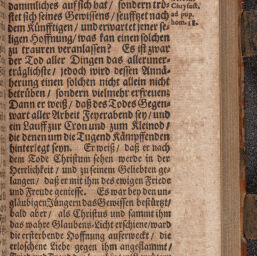 dammliches auf sich hat/ sondern trö-
stet sich seines Gewissens/ seuffzet nach
dem Künfftigen/ und erwartet jener se-
ligen Hoffnung/ was kan einen solchen
zu trauren veranlassen? Es ist zwar
der Tod aller Dingen das alleruner-
träglichste/ jedoch wird dessen Annä-
herung einen solchen nicht allein nicht
betrüben/ sondern vielmehr erfreuen:
Dann er weiß/ daß des Todes Gegen-
wart aller Arbeit Feyerabend sey/ und
ein Lauff zur Cron und zum Kleinod/
die denen um die Tugend Kämpffenden
hinterlegt seyn. Er weiß/ daß er nach
dem Tode Christum sehen werde in der
Herrlichkeit/ und zu seinem Geliebten ge-
langen/ daß er mit ihm des ewigen Fried
und Freude geniesse. Es war bey den un-
gläubigen Jüngern das Gewissen bestürtzt/
bald aber/ als Christus und sammt ihm
das wahre Glaubens-Licht erschiene/ ward
die ersterbende Hoffnung auferweckt/ die
erloschene Liebe gegen ihm angeflammt/
Chrysost.
ad pop.
hom. 18.